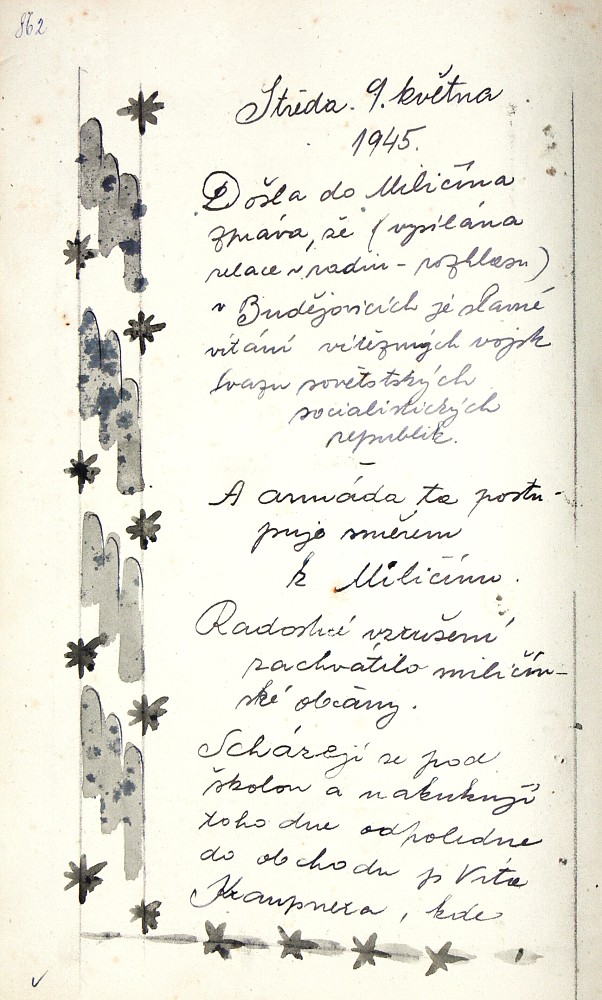 862
Středa. 9. května
1945.
Došla do Miličína
zpráva, že (vysílána
relace v radiu - rozhlasu)
v Budějovicích je slavné
vítání vítězných vojsk
Svazu sovětstských
socialistických
republik.
A armáda ta postu-
puje směrem
k Miličínu.
Radostné vzrušení
zachvátilo miličín-
ské občany.
Scházejí se pod
školou a nakukují
toho dne odpoledne
do obchodu p. Víta
Kraupnera, kde